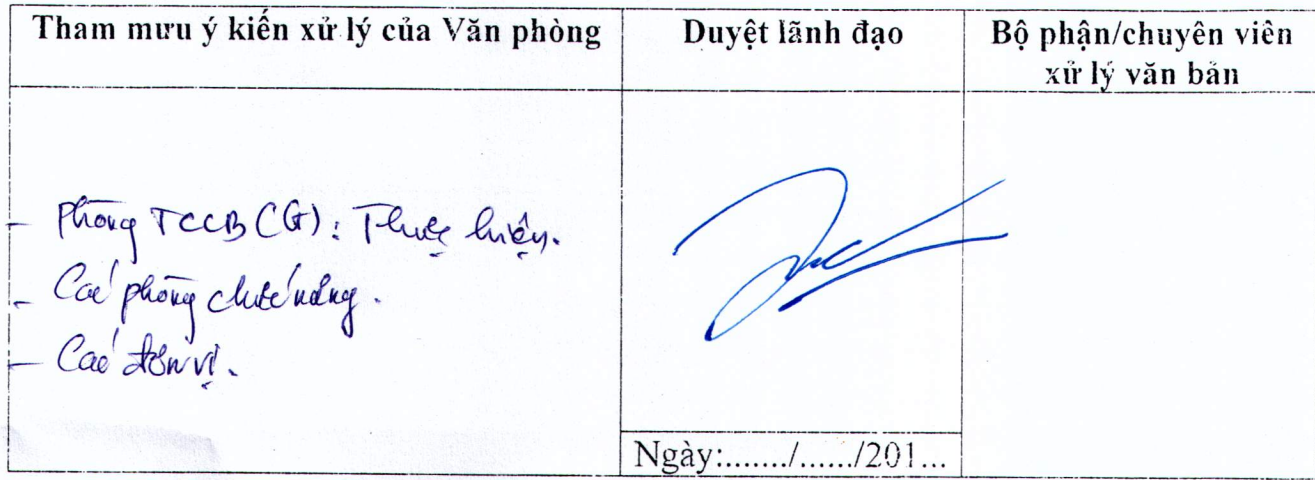 Tham mưu ý kiến xử lý của Văn phòng
Duyệt lãnh đạo
Bộ phận/chuyên viên
xử lý văn bản
- Phòng TCCB (G): Thực hiện.
- Các phòng chức năng.
- Các đơn vị.
Ngày:......./....../201...